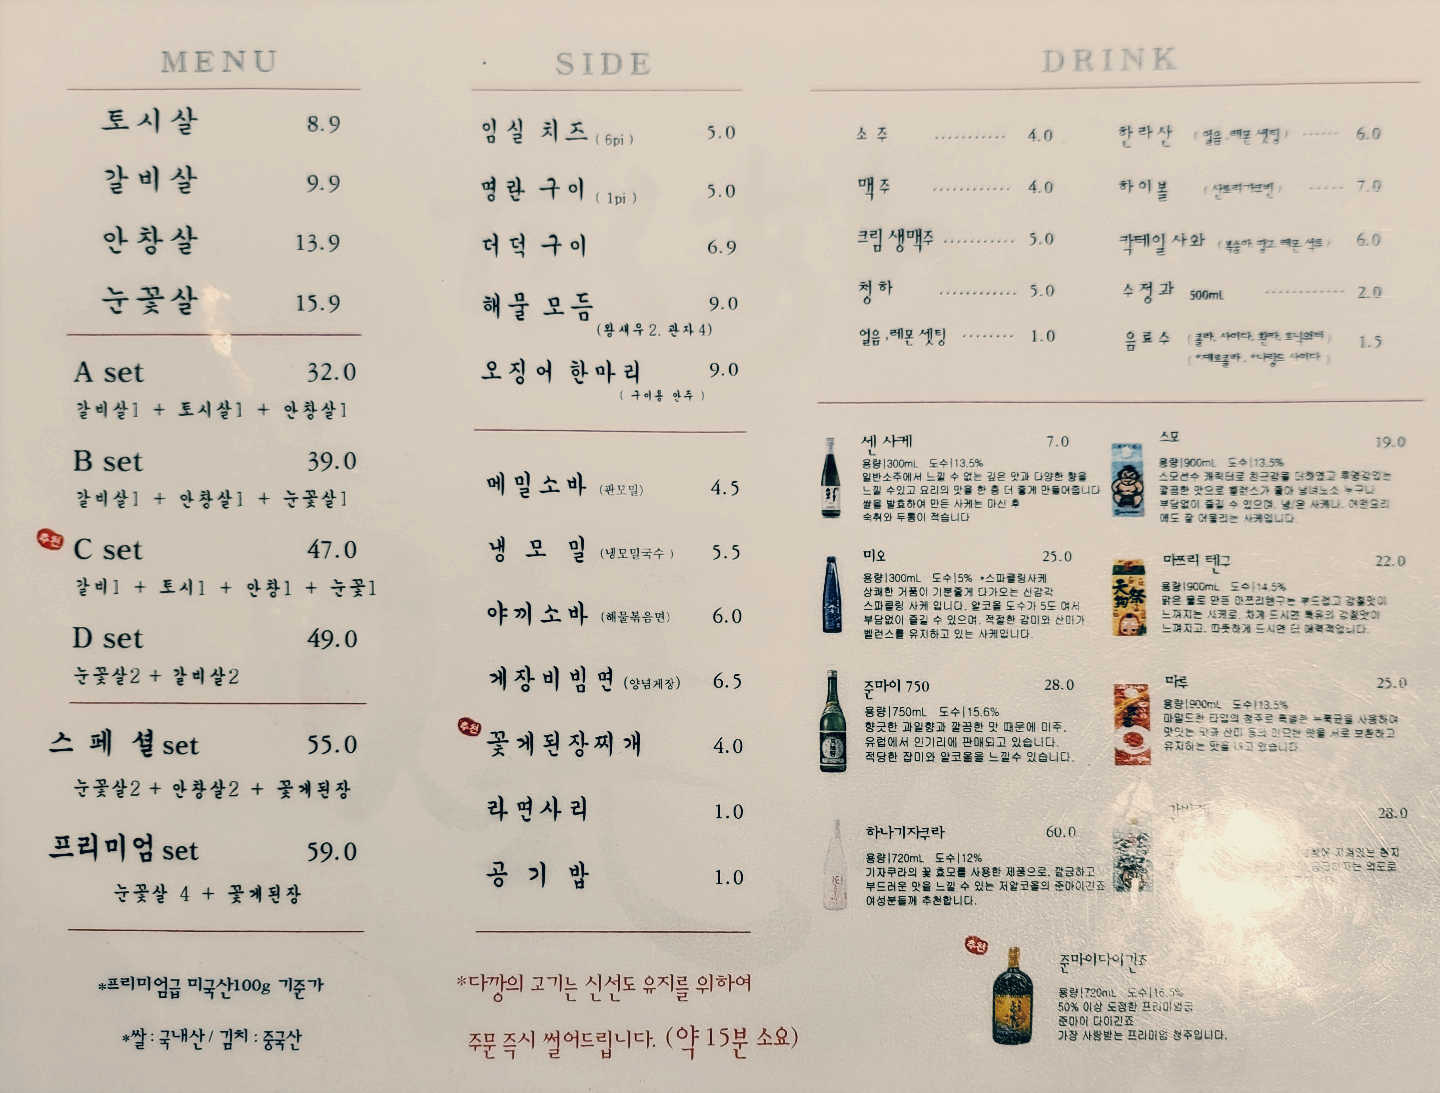 MENU
토시살 8.9
갈비살 9.9
안창살 13.9
눈꽃살 15.9
A set 32.0
갈비살1 + 토시살1 + 안창살1
B set 39.0
갈비살1 + 안창살1 + 눈꽃살1
추천
C set 47.0
갈비1 + 토시1 + 안창1 + 눈꽃1
D set 49.0
눈꽃살2 + 갈비살2
스페셜 set 55.0
눈꽃살2 + 안창살2 + 꽃게된장
프리미엄 set 59.0
눈꽃살 4 + 꽃게된장
*프리미엄급 미국산100g 기준가
*쌀 : 국내산 / 김치 : 중국산
SIDE
임실 치즈 ( 6pi ) 5.0
명란 구이 ( 1pi ) 5.0
더덕 구이 6.9
해물 모듬 9.0
(왕새우2. 관자4)
오징어 한마리 9.0
( 구이용 안주 )
메밀소바 (판모밀) 4.5
냉 모 밀 (냉모밀국수 ) 5.5
야끼소바 (해물볶음면) 6.0
게장비빔면 (양념게장) 6.5
추천
꽃게된장찌개 4.0
라면사리 1.0
공 기 밥 1.0
*다깡의 고기는 신선도 유지를 위하여
주문 즉시 썰어드립니다. (약 15분 소요)
DRINK
소주 ........... 4.0
맥주 ............ 4.0
크림 생맥주 ........... 5.0
청하 ............ 5.0
얼음,레몬 셋팅 ........ 1.0
한라산 (얼음,레몬 셋팅) ...... 6.0
하이볼 (산토리가쿠빈) ..... 7.0
칵테일 사와 (복숭아, 망고, 레몬, 석류) 6.0
수정과 500mL ............ 2.0
음료수 (콜라, 사이다, 환타, 토닉워터) 1.5
(*제로콜라, *나랑드 사이다 )
센 사케 7.0
용량|300mL 도수|13.5%
일반소주에서 느낄 수 없는 깊은 맛과 다양한 향을
느낄 수있고 요리의 맛을 한 층 더 좋게 만들어줍니다
쌀을 발효하여 만든 사케는 마신 후
숙취와 두통이 적습니다
미오 25.0
용량|300mL 도수|5% *스파클링사케
상쾌한 거품이 기분좋게 다가오는 신감각
스파클링 사케 입니다. 알코올 도수가 5도 여서
부담없이 즐길 수 있으며, 적절한 감미와 산미가
밸런스를 유지하고 있는 사케입니다.
준마이 750 28.0
용량|750mL 도수|15.6%
향긋한 과일향과 깔끔한 맛 때문에 미주,
유럽에서 인기리에 판매되고 있습니다.
적당한 잡미와 알코올을 느낄수 있습니다.
하나기자쿠라 60.0
용량|720mL 도수|12%
기자쿠라의 꽃 효모를 사용한 제품으로, 깔끔하고
부드러운 맛을 느낄 수 있는 저알코올의 준마이긴죠
여성분들께 추천합니다.
스모 19.0
용량|900mL 도수|13.5%
스모선수 캐릭터로 친근감을 더하였고 투명감있는
깔끔한 맛으로 밸런스가 좋아 남녀노소 누구나
부담없이 즐길 수 있으며, 냉/온 사케나, 어떤요리
에도 잘 어울리는 사케입니다.
마쯔리 텐구 22.0
용량|900mL 도수|14.5%
맑은 물로 만든 마쯔리텐구는 부드럽고 감칠맛이
느껴지는 사케로, 차게 드시면 특유의 감칠맛이
느껴지고, 따뜻하게 드시면 더 매력적입니다.
마루 25.0
용량|900mL 도수|13.5%
마일드한 타입의 청주로 특별한 누룩균을 사용하여
맛있는 맛과 산미 등의 미묘한 맛을 서로 보완하고
유지하는 맛을 내고 있습니다.
28.0
추천
준마이다이긴죠
용량|720mL 도수|16.5%
50% 이상 도정한 프리미엄급
준마이 다이긴죠
가장 사랑받는 프리미엄 청주입니다.